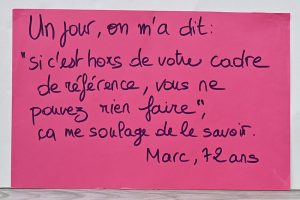 Un jour, on m'a dit :
"si c'est hors de votre cadre
de référence, vous ne
pouvez rien faire",
ça me soulage de le savoir.
Marc, 72 ans